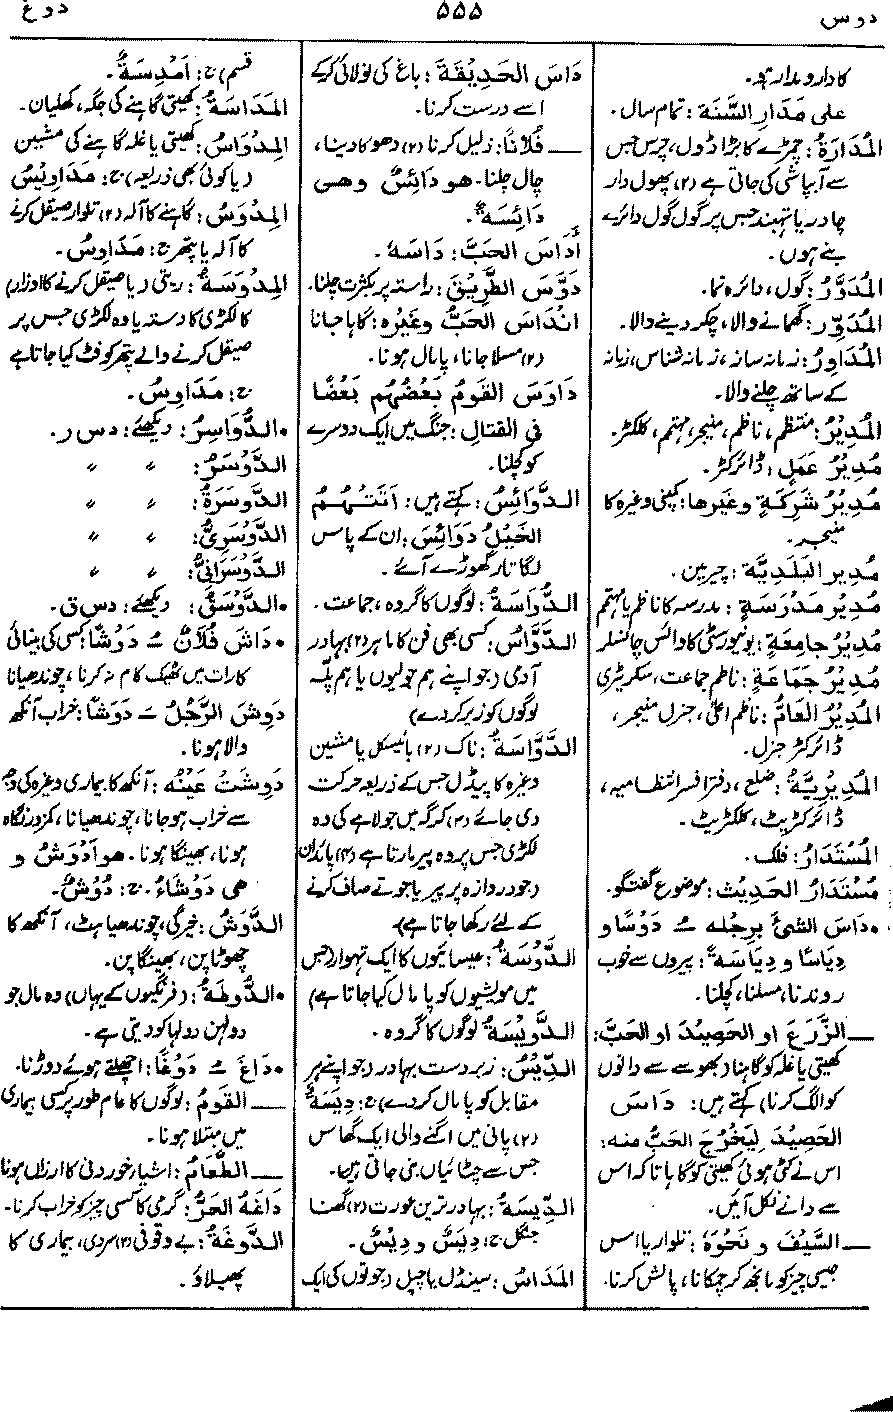 دوس
۵۵۵
دوغ
کا دار و مدار ہو۔
علی مَدَارِ السَّنَة: تمام سال۔
المُدَارَةُ: چمڑے کا بڑا ڈول، چرس جس
سے آبپاشی کی جاتی ہے (۲) پھول دار
چادر یا تہبند جس پر گول گول دائرے
بنے ہوں۔
المُدَوَّرُ: گول، دائرہ نما۔
المُدَوِّر: گھمانے والا، چکر دینے والا۔
المُدَاوِرُ: زمانہ ساز، زمانہ شناس، زمانہ
کے ساتھ چلنے والا۔
المُدِيْرُ: منتظم، ناظم، منیجر، مہتمم، کلکٹر۔
مُدِيرُ عَمَلٍ: ڈائرکٹر۔
مُدِيرُ شَرِكَةٍ وغَيرها: کمپنی وغیرہ کا
منیجر۔
مُدِير البَلَدِيَّة: چیرمین۔
مُدِيرُ مَدْرَسَةٍ: مدرسہ کا ناظم یا مہتمم
مُدِيرُ جامِعَة: یونیورسٹی کا وائس چانسلر
مُدِيرُ جَمَاعَةٍ: ناظم جماعت، سکریٹری
المُدِيرُ العَامُّ: ناظم اعلیٰ، جنرل منیجر،
ڈائرکٹر جنرل۔
المُدِيْرِيَّةُ: ضلع، دفتر افسر انتظامیہ،
ڈائرکٹریٹ، کلکٹریٹ۔
المُسْتَدَارُ: فلک۔
مُسْتَدَارُ الحَدِيث: موضوعِ گفتگو۔
• دَاسَ الشئَ بِرِجْلِه ـُ دَوْسًا و
دِيَاسًا و دِيَاسَةً: پیروں سے خوب
روندنا، مسلنا، کچلنا۔
ـــ الزَّرْعَ او الحَصِيْدَ او الحَبَّ:
کھیتی یا غلہ کو گاہنا (بھوسے سے دانوں
کو الگ کرنا) کہتے ہیں: دَاسَ
الحَصِيْدَ لِيَخْرُجَ الحَبُّ منه:
اس نے کٹی ہوئی کھیتی کو گاہا تاکہ اس
سے دانے نکل آئیں۔
ـــ السَّيْفَ و نَحْوَهُ: تلوار یا اس
جیسی چیز کو مانجھ کر چمکانا، پالش کرنا۔
دَاسَ الحَدِيْقَةَ: باغ کی نولائی کر کے
اسے درست کرنا۔
ـــ فُلَانًا: ذلیل کرنا (۲) دھوکا دینا،
چال چلنا۔ هو دَائِسٌ وهي
دَائِسَةٌ۔
أَدَاسَ الحَبَّ: دَاسَهُ۔
دَوَّسَ الطَّرِيْقَ: راستہ پر بکثرت چلنا۔
انْدَاسَ الحَبُّ وغَيْرُه: گاہا جانا
(۲) مسلا جانا، پامال ہونا۔
دَاوَسَ القَومُ بَعْضُهُم بَعْضًا
فِي القِتَال: جنگ میں ایک دوسرے
کو کچلنا۔
الدَّوَائِسُ: کہتے ہیں: أَتَتْهُمُ
الخَيْلُ دَوَائِسَ: ان کے پاس
لگاتار گھوڑے آئے۔
الدُّوَاسَةُ: لوگوں کا گروہ، جماعت۔
الدَّوَّاسُ: کسی بھی فن کا ماہر (۲) بہادر
آدمی (جو اپنے ہم جولیوں یا ہم پلہ
لوگوں کو زیر کر دے)
الدَّوَّاسَةُ: ناک (۲) بائیسکل یا مشین
وغیرہ کا پیڈل جس کے ذریعہ حرکت
دی جائے (۳) کرگہ میں جولاہے کی وہ
لکڑی جس پر وہ پیر مارتا ہے (۴) پائدان
(جو دروازہ پر پیر یا جوتے صاف کرنے
کے لئے رکھا جاتا ہے)
الدَّوْسَةُ: عیسائیوں کا ایک تہوار (جس
میں مویشیوں کو پامال کیا جاتا ہے)
الدَّوِيْسَةُ: لوگوں کا گروہ۔
الدِّيْسُ: زبردست بہادر (جو اپنے ہر
مقابل کو پامال کر دے) ج: دِيَسَةٌ
(۲) پانی میں اگنے والی ایک گھاس
جس سے چٹائیاں بنی جاتی ہیں۔
الدِّيْسَةُ: بہادر ترین عورت (۲) گھنا
جنگل۔ ج: دِيَسٌ و دِيْسٌ۔
المَدَاسُ: سینڈل یا چپل (جوتوں کی ایک
قسم) ج: أَمْدِسَةٌ۔
المَدَاسَةُ: کھیتی گاہنے کی جگہ، کھلیان۔
المِدْوَاسُ: کھیتی یا غلہ گاہنے کی مشین
(یا کوئی بھی ذریعہ) ج: مَدَاوِيْسُ
المِدْوَسُ: گاہنے کا آلہ (۲) تلوار صیقل کرنے
کا آلہ یا پتھر ج: مَدَاوِسُ۔
المِدْوَسَةُ: ریتی (یا صیقل کرنے کا اوزار)
کا لکڑی کا دستہ یا وہ لکڑی جس پر
صیقل کرنے والے پتھر کو فٹ کیا جاتا ہے
ج: مَدَاوِسُ۔
• الدُّوَاسِرُ: دیکھئے: دس ر۔
الدَّوْسَرُ: 〃 〃
الدَّوْسَرَةُ: 〃 〃
الدَّوْسَرِيُّ: 〃 〃
الدَّوْسَرَانِيُّ: 〃 〃
• الدَّوْسَقُ: دیکھئے: دس ق۔
• دَاشَ فُلَانٌ ـُ دَوْشًا: کسی کی بینائی
کا رات میں ٹھیک کام نہ کرنا، چوندھیانا
دَوِشَ الرَّجُلُ ـَ دَوَشًا: خراب آنکھ
والا ہونا۔
دَوِشَتْ عَيْنُه: آنکھ کا بیماری وغیرہ کی وجہ
سے خراب ہو جانا، چوندھیانا، کمزور نگاہ
ہونا، بھینگا ہونا۔ هو أَدْوَشُ و
هي دَوْشَاءُ۔ ج: دُوْشٌ۔
الدَّوَشُ: خیرگی، چوندھیاہٹ، آنکھ کا
چھوٹا پن، بھینگا پن۔
• الدُّوطَةُ: (فرنگیوں کے یہاں) وہ مال جو
دولہن دولہا کو دیتی ہے۔
• دَاغَ ـُ دَوْغًا: اچھلتے ہوئے دوڑنا۔
ـــ القَومُ: لوگوں کا عام طور پر کسی بیماری
میں مبتلا ہونا۔
ـــ الطَّعَامُ: اشیاء خوردنی کا ارزاں ہونا
دَاغَهُ الحَرُّ: گرمی کا کسی چیز کو خراب کرنا۔
الدَّوْغَةُ: بے وقوفی (۲) سردی، بیماری کا
پھیلاؤ۔